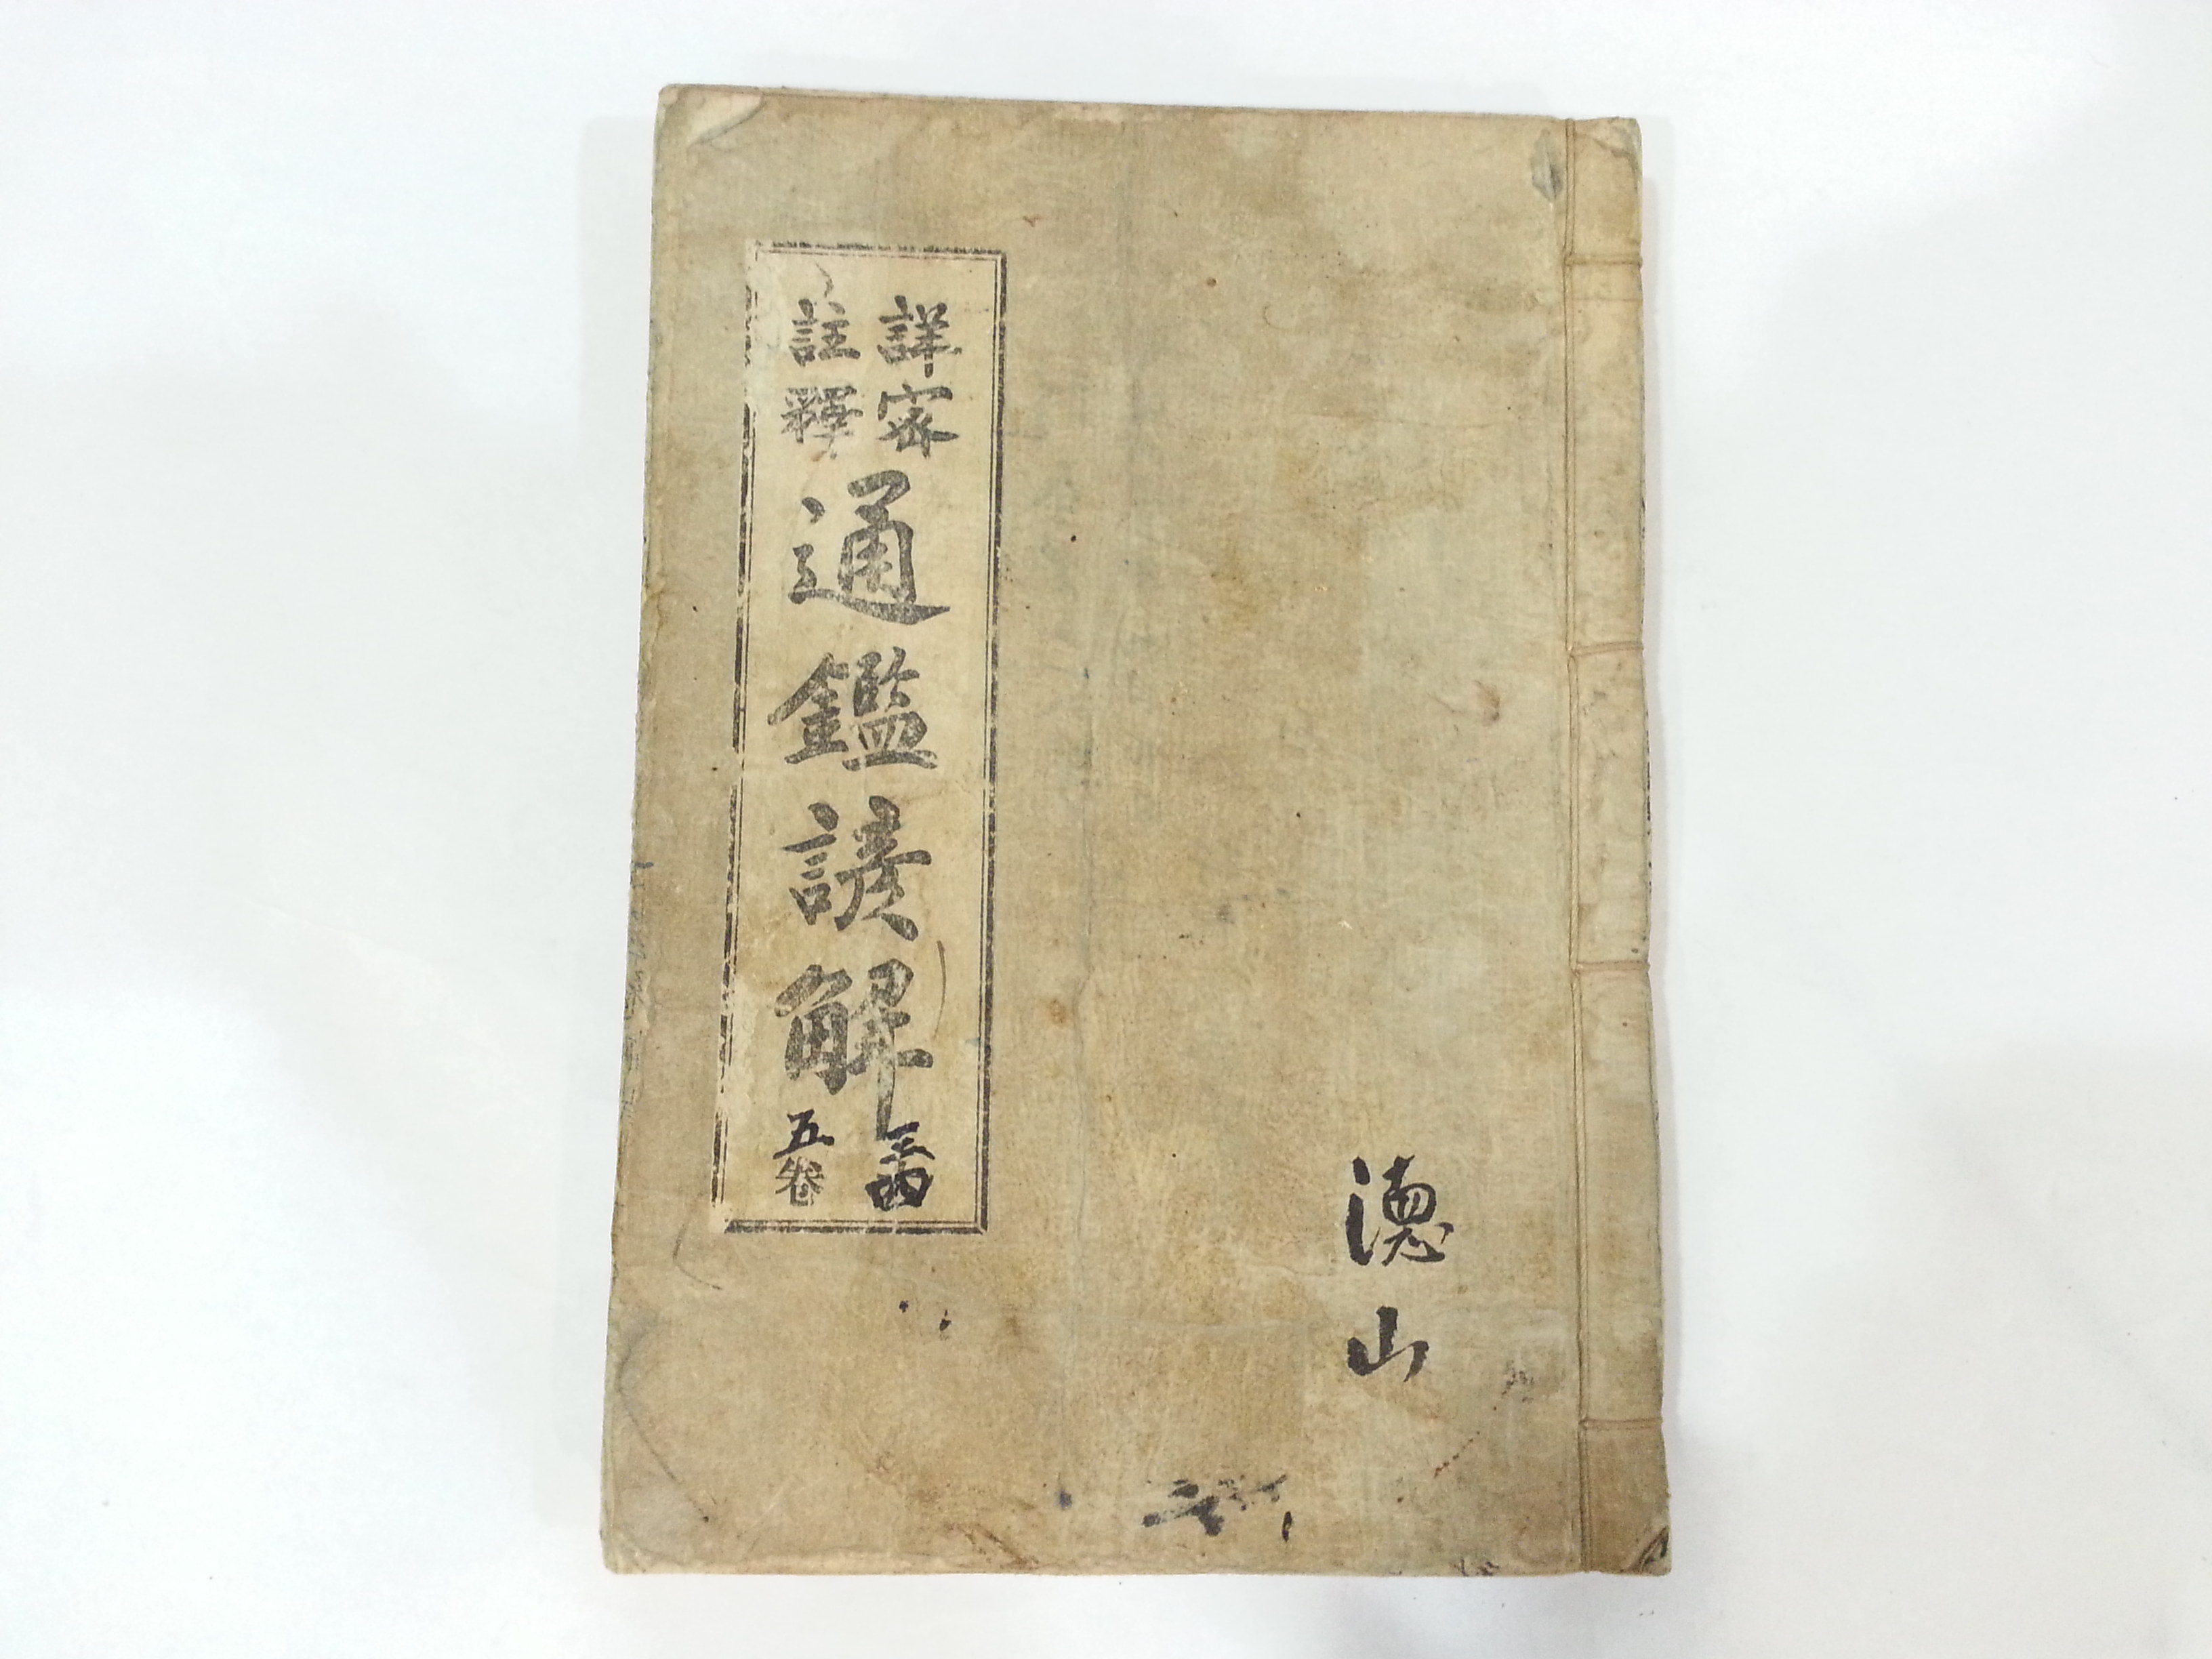 詳密
註釋
通鑑諺解
三四
五卷
德山